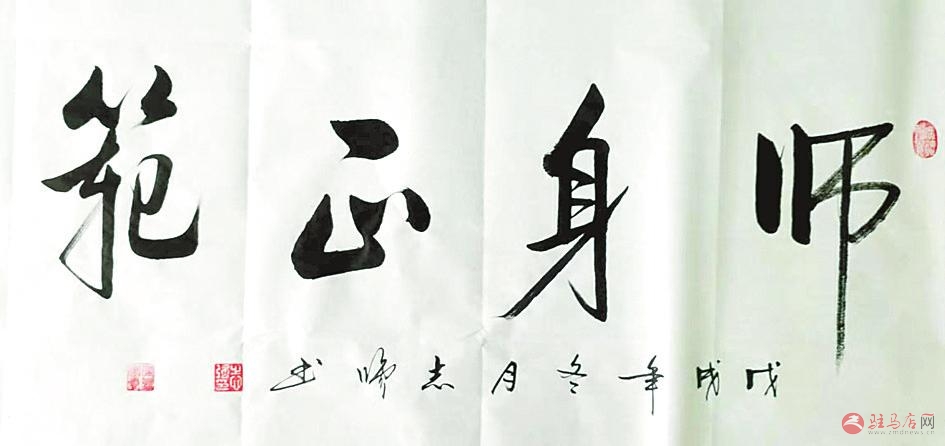 师身正範
戊戌年冬月志书
驻马店网
www.zmdnews.cn